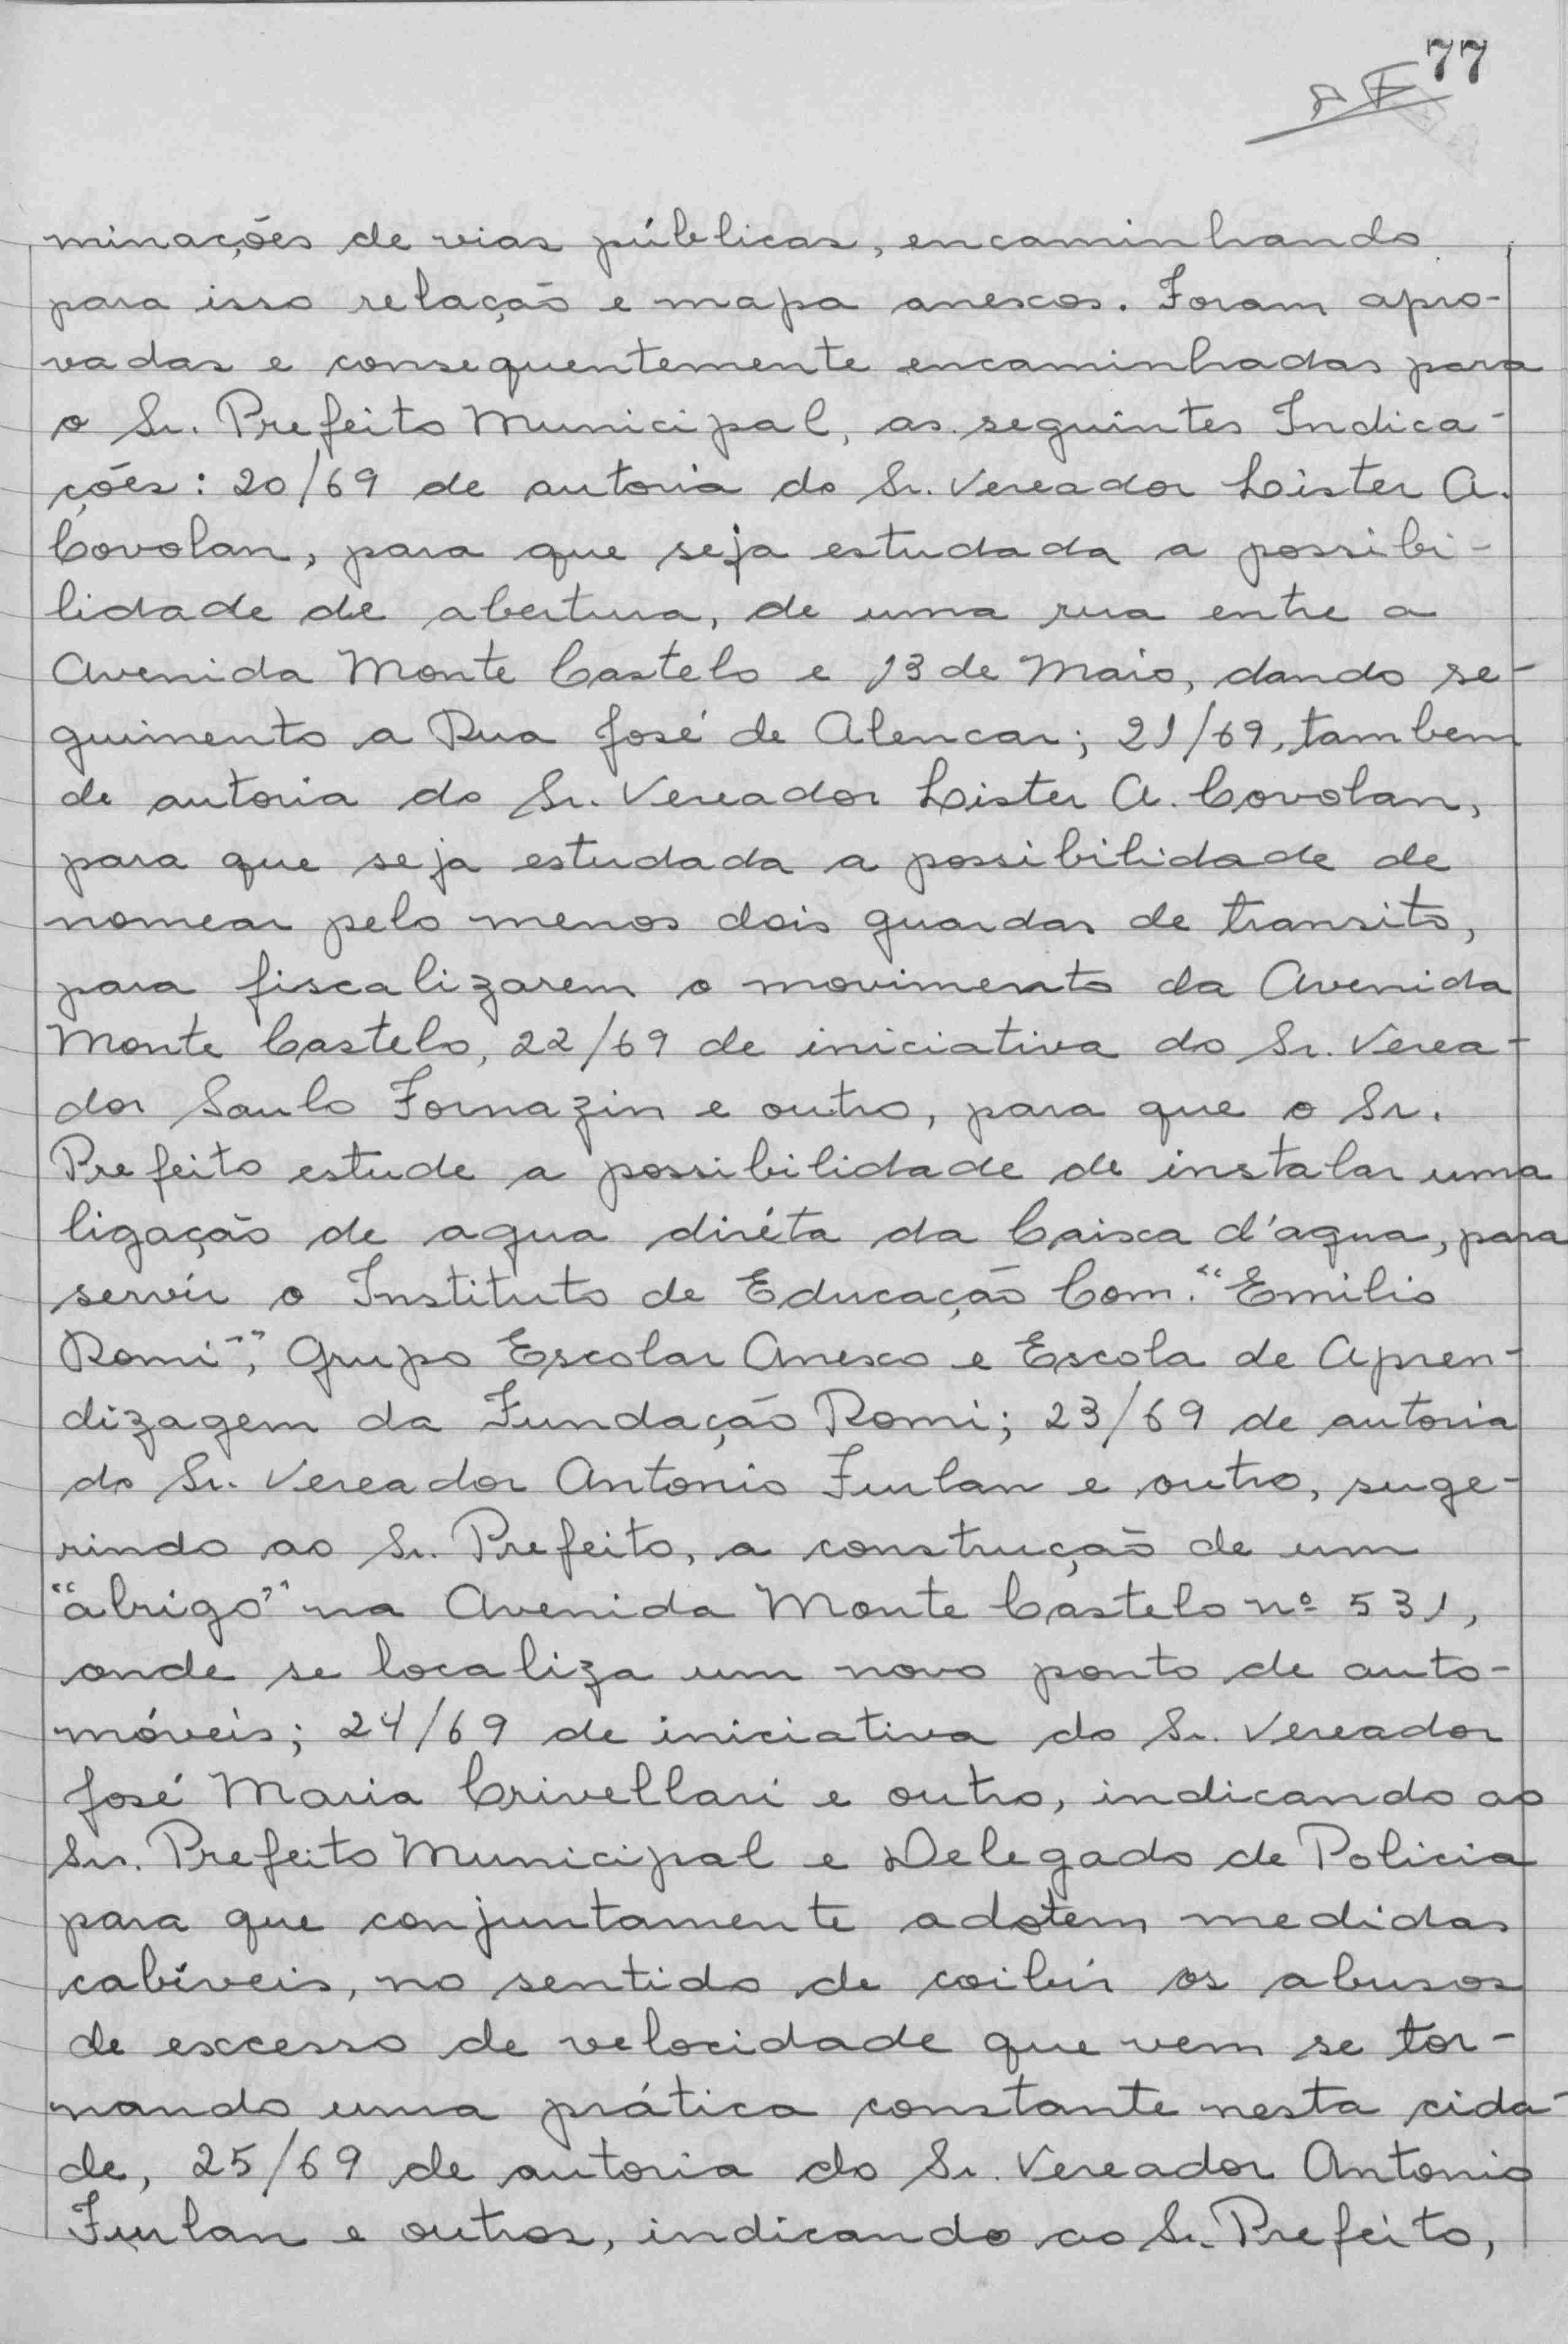 77
minações de vias públicas, encaminhando
para isso relação e mapa anexos. Foram apro-
vadas e consequentemente encaminhadas para
o Sr. Prefeito Municipal, as seguintes Indica-
ções: 20/69 de autoria do Sr. Vereador Lister A.
Covolan, para que seja estudada a possibi-
lidade de abertura, de uma rua entre a
Avenida Monte Castelo e 13 de Maio, dando se-
guimento a Rua José de Alencar; 21/69, tambem
de autoria do Sr. Vereador Lister A. Covolan,
para que seja estudada a possibilidade de
nomear pelo menos dois guardas de transito,
para fiscalizarem o movimento da Avenida
Monte Castelo, 22/69 de iniciativa do Sr. Verea-
dor Saulo Fornazin e outro, para que o Sr.
Prefeito estude a possibilidade de instalar uma
ligação de agua diréta da Caixa d'agua, para
servir o Instituto de Educação Com. "Emilio
Romi", Grupo Escolar Anexo e Escola de Apren-
dizagem da Fundação Romi; 23/69 de autoria
do Sr. Vereador Antonio Furlan e outro, suge-
rindo ao Sr. Prefeito, a construção de um
"abrigo" na Avenida Monte Castelo nº 531,
onde se localiza um novo ponto de auto-
móveis; 24/69 de iniciativa do Sr. Vereador
José Maria Crivellari e outro, indicando ao
Sr. Prefeito Municipal e Delegado de Policia
para que conjuntamente adotem medidas
cabíveis, no sentido de coibir os abusos
de excesso de velocidade que vem se tor-
nando uma prática constante nesta cida-
de, 25/69 de autoria do Sr. Vereador Antonio
Furlan e outros, indicando ao Sr. Prefeito,